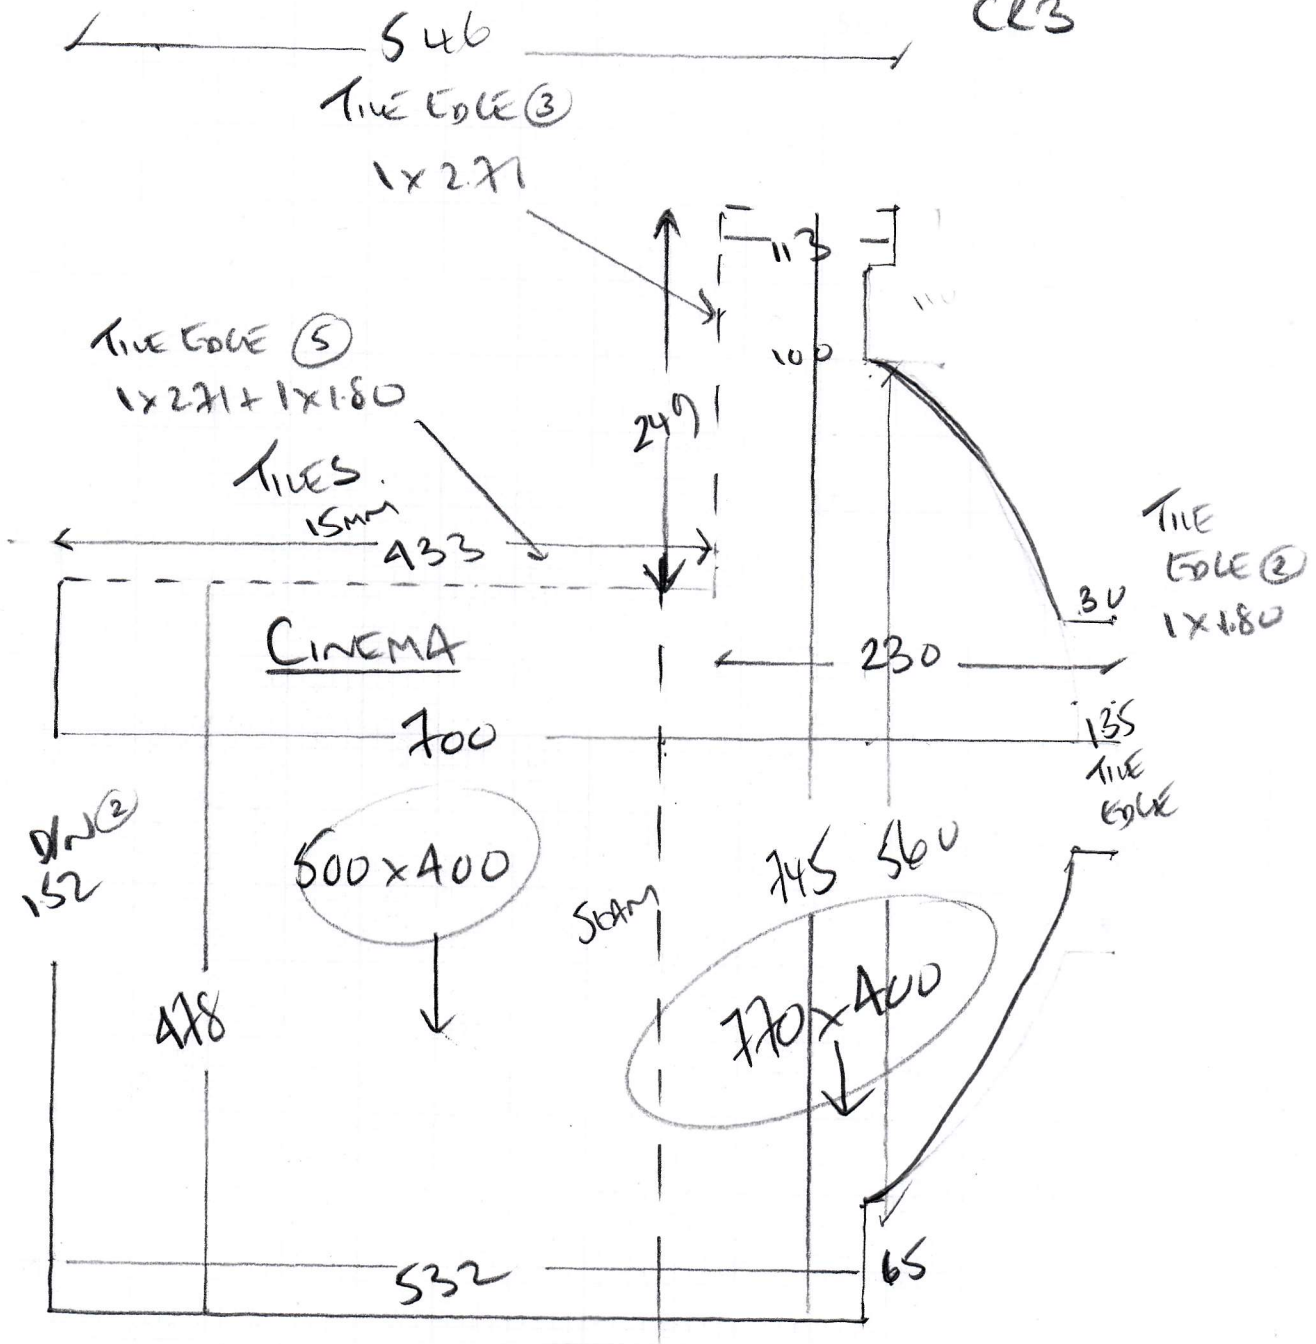 CR3
546
TILE EDGE ③
1 x 2.71
113
100
TILE EDGE ⑤
1 x 2.71 + 1 x 1.80
249
TILES
15MM
433
TILE
EDGE ②
1 x 1.80
30
230
CINEMA
700
135
TILE
EDGE
D/N ②
152
500 x 400
745 560
SEAM
770 x 400
478
532
65